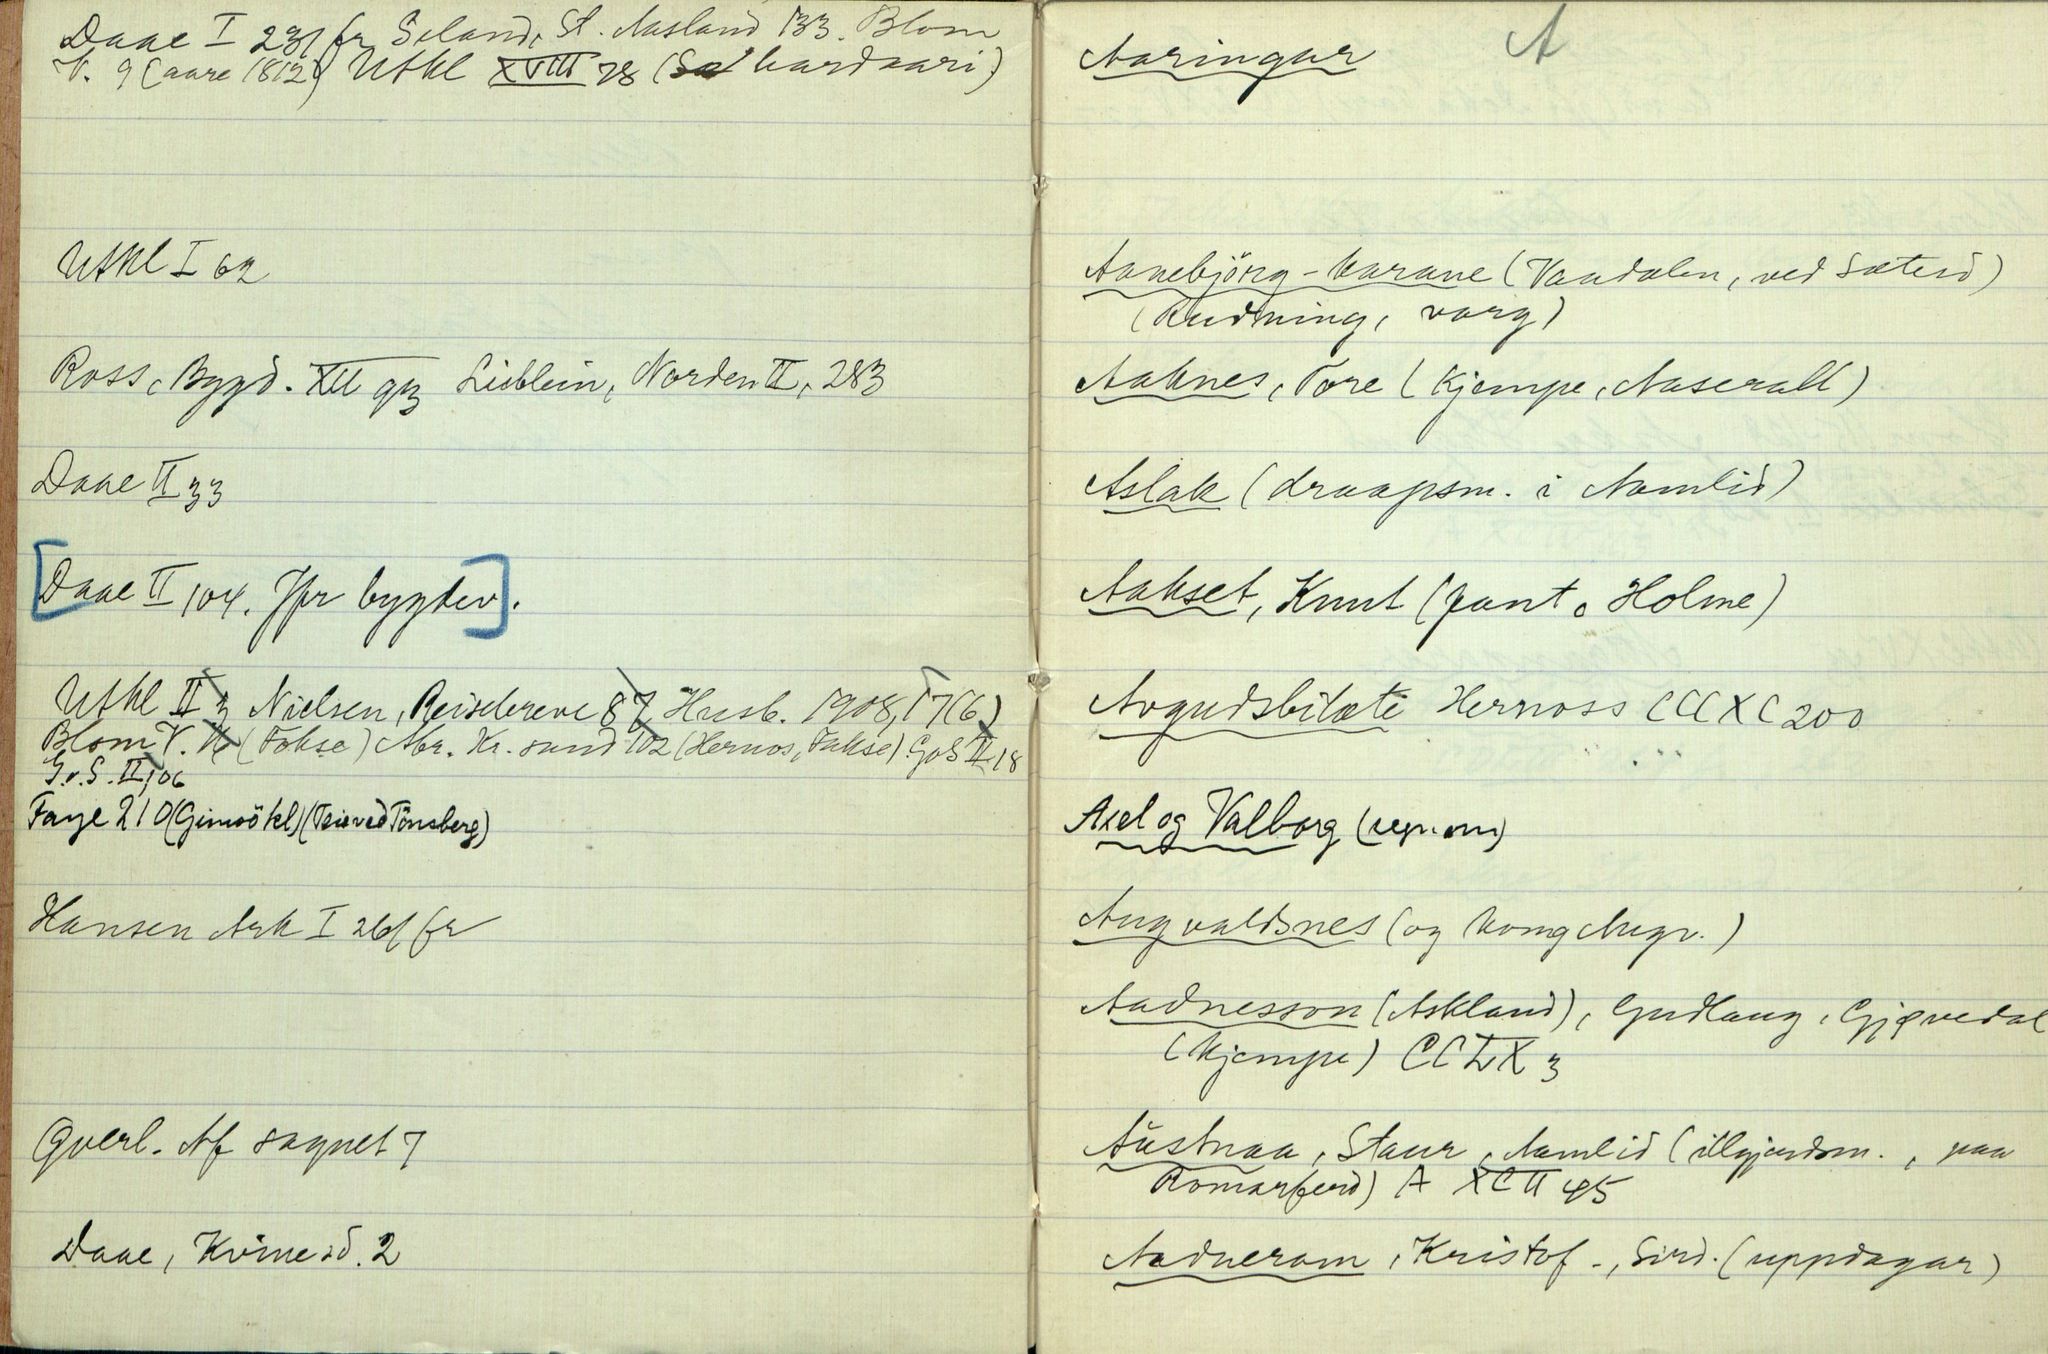 Daae I 231 fr Seland, St. Aasland 133. Blom
V. 9 (aare 1812) Utkl XVIII 78 (hardaari)
Utkl I 62
Ross, Bygd. XII 93 Lieblein, Norden II, 283
Daae II 33
[Daae II 104. Jfr bygdev].
Utkl II 3 Nielsen, Reisebreve 87, Husb. 1908, 17(6)
Blom V. (Fokse) Mr. Kr.sand 102 (Hernos, Fakse). GoS II 18
G.o.S. II, 106
Faye 210 (Gimsö kl) (Teie ved Tönsberg)
Hansen Ark I 261 fr
Qverl. Af sagnet 7
Daae, Kvinesd. 2
A
Aaringar
Aanebjörg-karane (Vaadalen, ved Sætesd)
(Rudning, varg)
Aaknes, Tore (Kjempe, Aaserall)
Aslak (draapsm. i Aamlid)
Aakset, Knut (fant. Holme)
Avgudsbilæte Hernoss CCCXC 200
Axel og Valborg (segn om)
Augvaldsnes (og kong Augv.)
Aadnesson (Askland), Gudlaug, Gjøvedal
(kjempe) CCLX 3
Austnaa, Staur, Aamlid (illgjerdsm., paa
Romarferd) A XCII 45
Aadneram, Kristof., Sird. (uppdagar)